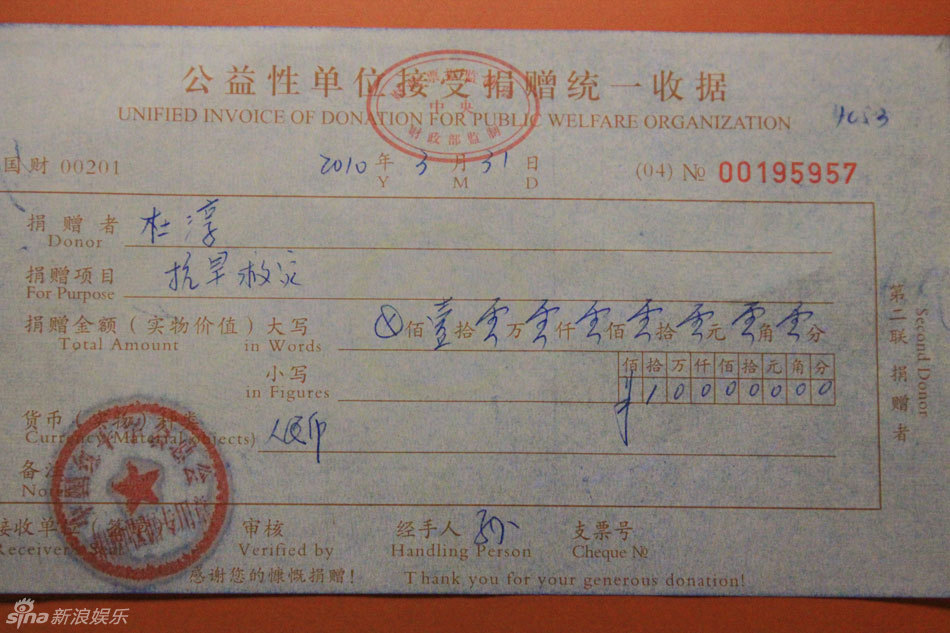 公益性单位接受捐赠统一收据
UNIFIED INVOICE OF DONATION FOR PUBLIC WELFARE ORGANIZATION
4083
中央
财政部监制
国财 00201
2010 年 3 月 31 日
Y M D
(04) № 00195957
捐赠者 杜淳
Donor
捐赠项目 抗旱救灾
For Purpose
捐赠金额（实物价值）大写 ⊗佰壹拾零万零仟零佰零拾零元零角零分
Total Amount in Words
小写 佰拾万仟佰拾元角分
in Figures ¥10000000
货币（实物）种类 人民币
Currency(Material objects)
备注
Note
接收单位（签章） 审核 经手人 支票号
Receiver's Seal Verified by Handling Person Cheque №
感谢您的慷慨捐赠! Thank you for your generous donation!
第二联捐赠者
Second Donor
sina新浪娱乐